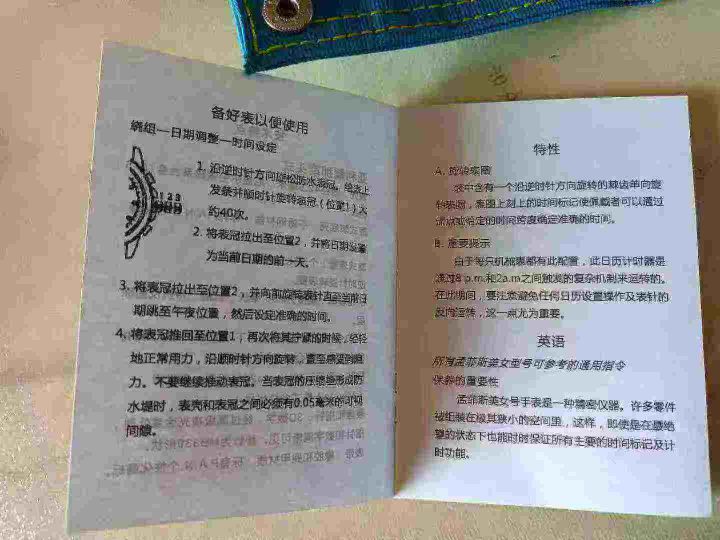 备好表以便使用
绕组—日期调整—时间设定
1 2 3
1. 沿逆时针方向旋松防水表冠。给表上
发条并顺时针旋转表冠（位置1）大
约40次。
2. 将表冠拉出至位置2，并将日期设置
为当前日期的前一天。
3. 将表冠拉出至位置2，并向前旋转表针直至当前日
期跳至午夜位置，然后设定准确的时间。
4. 将表冠推回至位置1，再次将其拧紧的时候，轻轻
地正常用力，沿顺时针方向旋转，直至感觉到阻
力。不要继续推动表冠。当表冠的压缩垫形成防
水堤时，表壳和表冠之间必须有0.05毫米的可视
间隙。
特性
A. 旋转表圈
表中含有一个沿逆时针方向旋转的棘齿单向旋
转表圈，表圈上刻上的时间标记使佩戴者可以通过
给定的时间跨度确定准确的时间。
B. 重要提示
由于每只机械表都有此配置，此日历计时器是
通过8 p.m.和2a.m之间触发的复杂机制来运转的。
在此期间，要注意避免任何日历设置操作及表针的
反向运转，这一点尤为重要。
英语
所有孟菲斯美女型号可参考的通用指令
保养的重要性
孟菲斯美女号手表是一种精密仪器。许多零件
被组装在极其狭小的空间里，这样，即使是在最绝
望的状态下也能时时保证所有主要的时间标记及计
时功能。